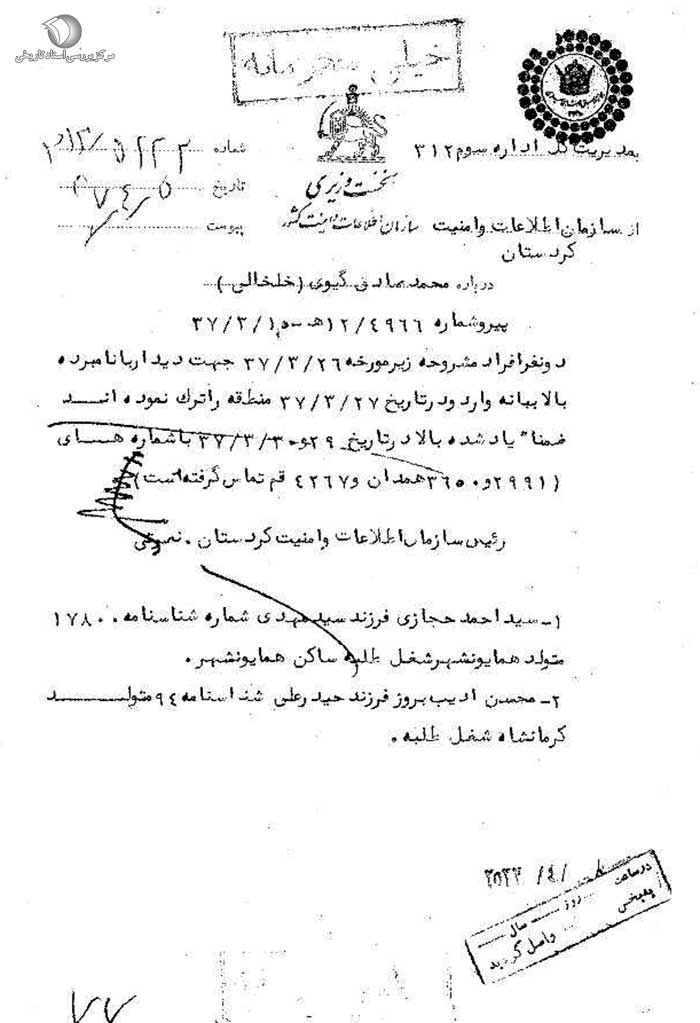 مرکز بررسی اسناد تاریخی
خیلی محرمانه
بمدیریت کل اداره سوم ۳۱۲
نخست وزیری
سازمان اطلاعات و امنیت کشور
شماره
تاریخ
پیوست
از سازمان اطلاعات وامنیت
کردستان
درباره محمدصادق گیوی (خلخالی)
پیروشماره ۱۲/۴۹۶۶هـ
دونفرافراد مشروحه زیرمورخه ۳۷/۳/۲۶ جهت دیدار بانامبرده
بالا ببانه وارد ودرتاریخ ۳۷/۳/۲۷ منطقه راترك نموده انـــد
ضمنا" یاد شده بالا درتاریخ ۲۹و۳۷/۳/۳۰ باشماره هـــای
(۲۹۹۱و۳۶۵۰همدان و۴۲۶۷ قم تماس گرفته است)
رئیس سازمان اطلاعات وامنیت کردستان .
۱ـ سید احمد حجازی فرزند سید مهدی شماره شناسنامه ۱۷۸۰۰
متولد همایونشهرشغل طلبه ساکن همایونشهر.
۲ـ محسن ادیب بروز فرزند حیدرعلی شناسنامه ۹۴ متولـــد
کرمانشاه شغل طلبه .
در ساعت
روز سال
ببخش
واصل گردید
۷۷